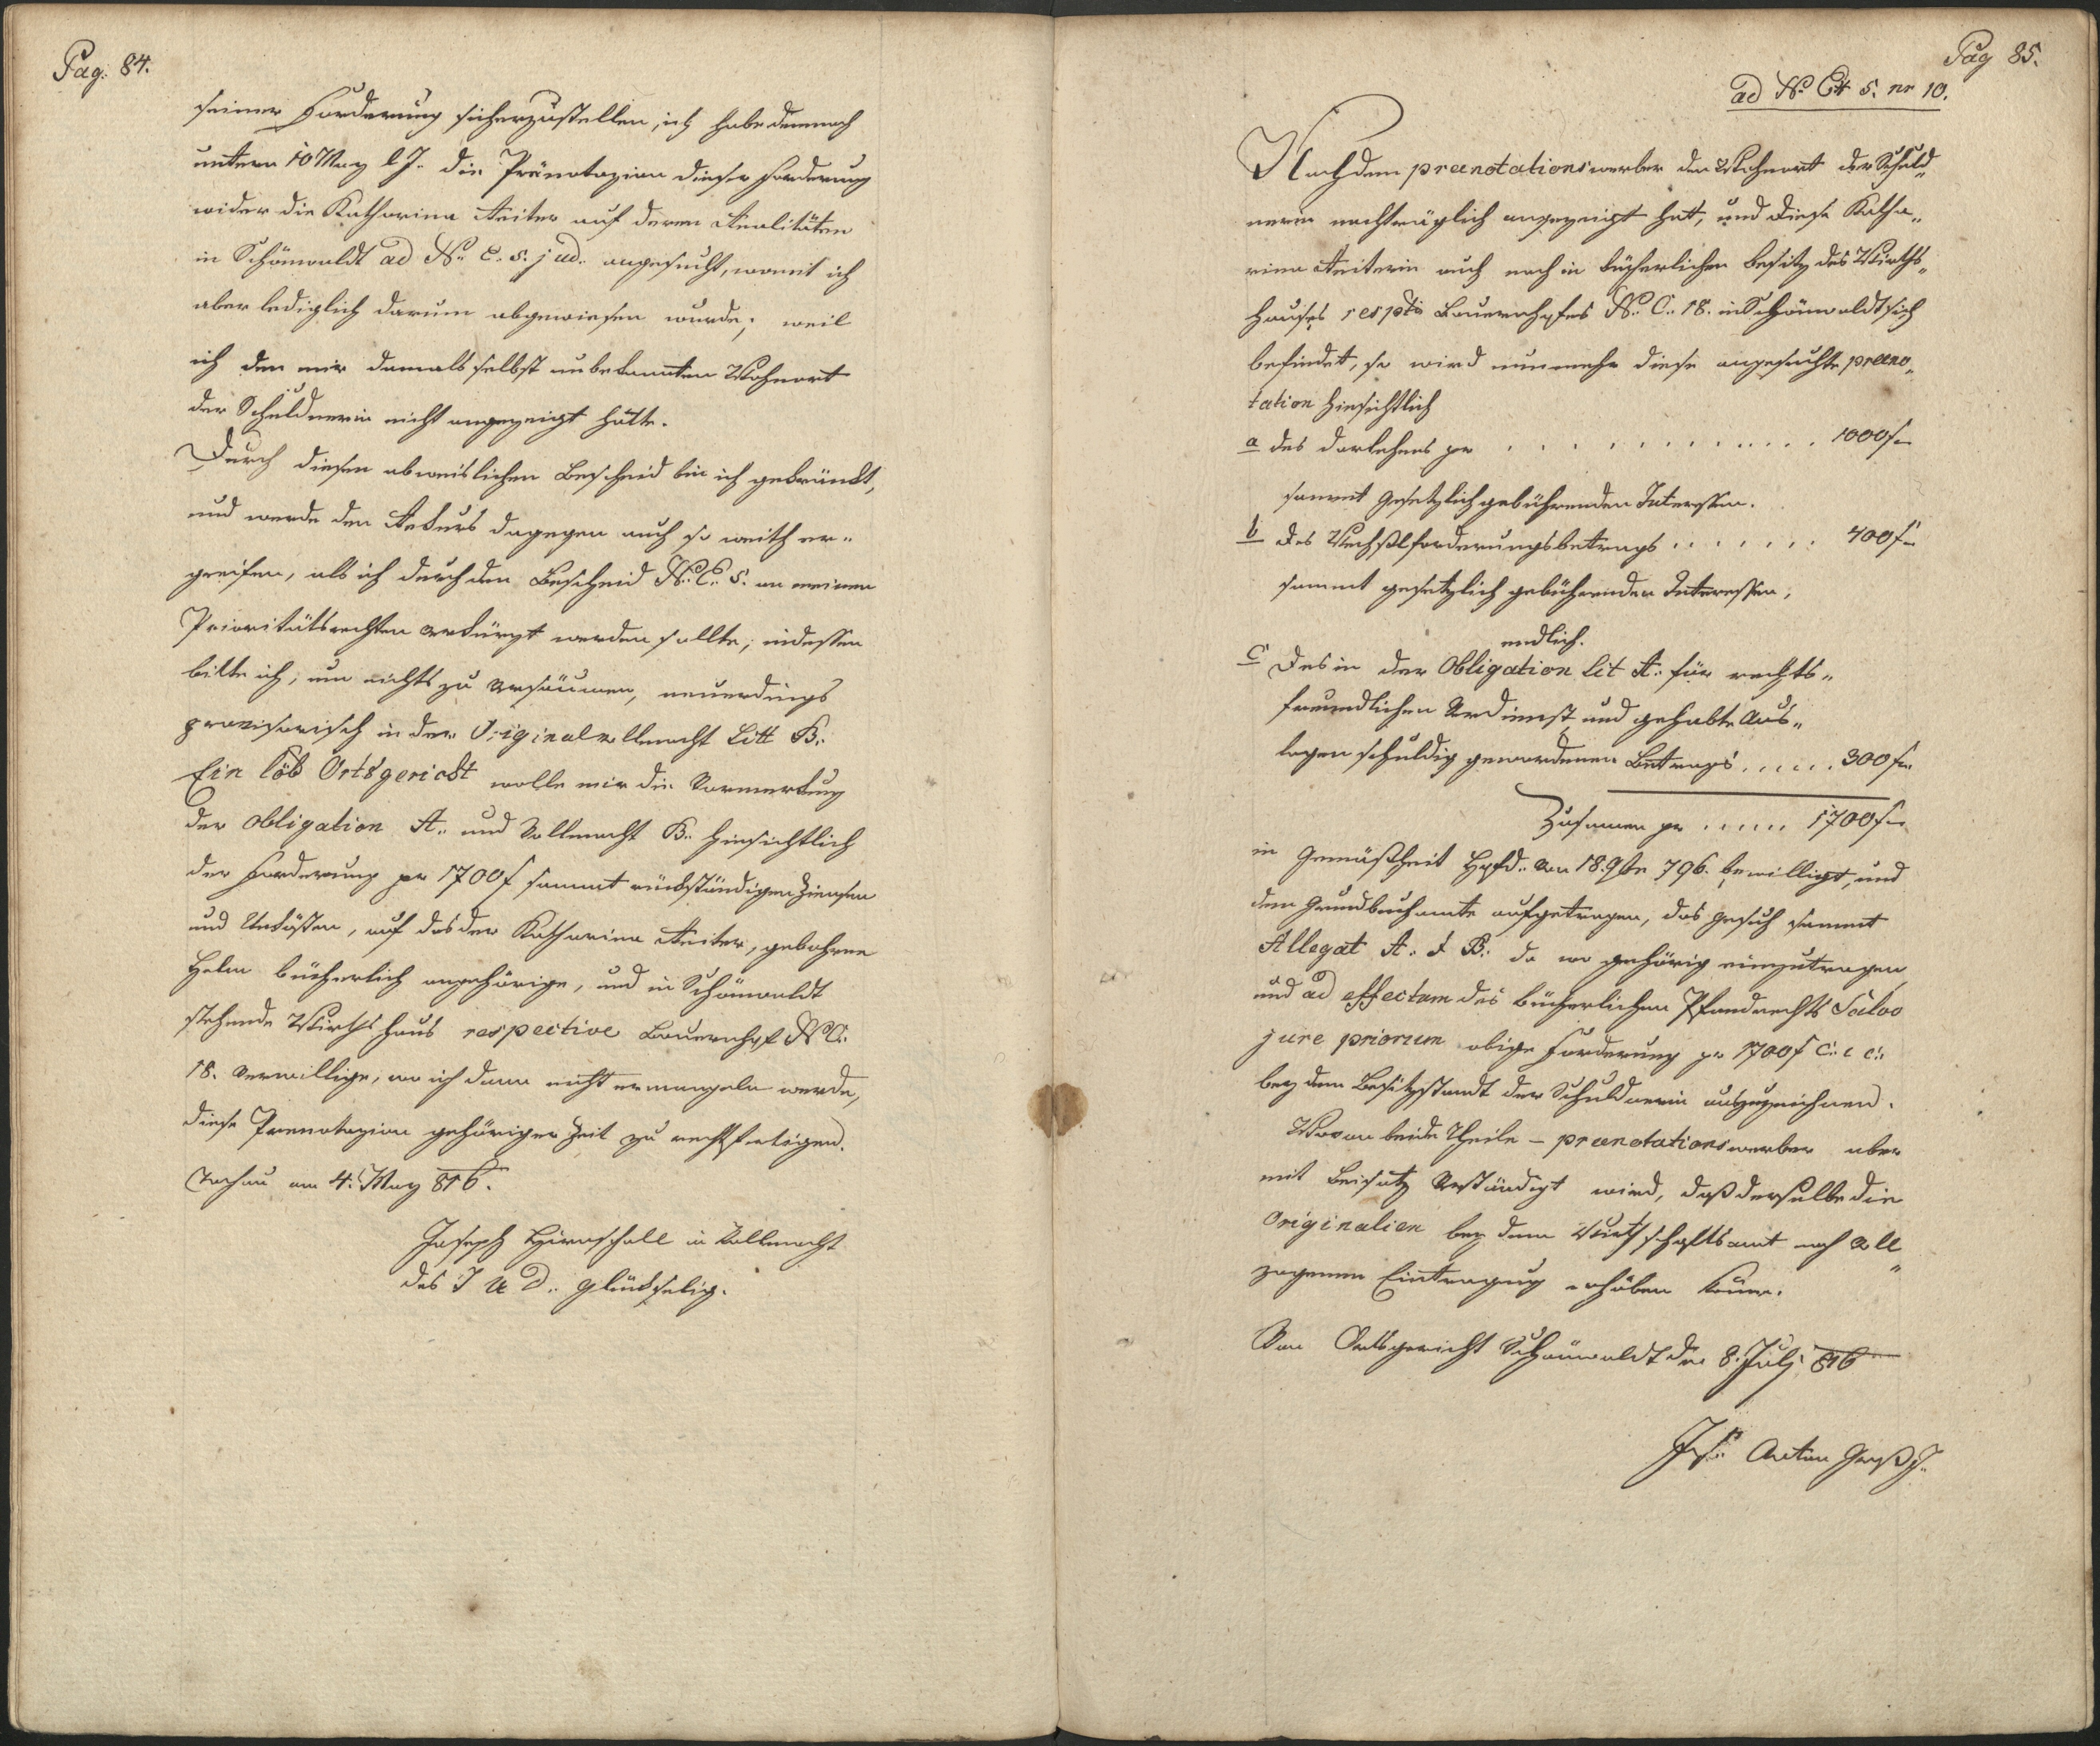 Pag: 84.
seiner Forderung sicherzustellen, ich habe demnach
untern 10 May l J. die Pränotazion dieser Forderung
wider die Katharina Reiter auf deren Realitäten
in Schönwaldt ad N. E. 5. jud. angesucht, womit ich
aber lediglich darum abgewiesen wurde; weil
ich den mir damals selbst unbekannten Wohnort
der Schuldnerin nicht angezeigt hätte.
Durch diesen abweislichen Bescheid bin ich gekränkt,
und werde den Rekurs dagegen auch so weith er„
greifen, als ich durch den Bescheid N. E. 5. an meinen
Prioritätsrechten verkürzt werden sollte; indessen
bitte ich, um nichts zu versäumen, neuerdings
provisorisch in der Originalvollmacht Litt B.
Ein löb Ortsgericht wolle mir die Vormerkung
der Obligation A. und Vollmacht B. hinsichtlich
der Forderung pr 1700 f sammt rückständigen Zinsen
und Unkösten, auf das der Katharina Reiter, gebohrne
Helm bücherlich angehörige, und in Schönwaldt
stehende Wirthshaus respective Bauernhof N C.
18. verwillige, wo ich dann nicht ermangeln werde,
diese Prenotazion gehöriger Zeit zu rechtfertigen.
Tachau am 4. May 816.
Joseph Hirnschall in Vollmacht
des J U D. Glückselig.
Pag 85.
ad N. Ex 5. nr 10.
Nachdem preenotationswerber den Wohnort der Schuld„
nerin nachträglich angezeigt hat, und diese Katha„
rina Reiterin auch noch in bücherlichen Besitz des Wirths„
hauses resptive Bauernhofes N. C. 18. in Schönwaldt sich
befindet, so wird nunmehr diese angesuchte preeno„
tation hinsichtlich
a des Darlehens pr . . . . . . . . . . . . 1000 f
sammt gesetzlich gebührenden Interessen.
b des Wechslforderungsbetrags . . . . . . . 400 f
sammt gesetzlich gebührenden Interessen,
endlich.
c Des in der Obligation lit A. für rechts„
freundlichen Verdienst und gehabte Aus„
lagen schuldig gewordenen Betrags . . . . . 300 f
Zusamen pr . . . . . 1700 f
in Gemäßheit Hofd. von 18. 9br 796. bewilligt, und
dem Grundbuchamte aufgetragen, das Gesuch sammt
Allegat A. & B. da wo gehörig einzutragen
und ad effectum des bücherlichen Pfandrechts Salvo
jure priorum obige Forderung pr 1700 f c. s c.
bey dem Besitzstandt der Schuldnerin auszuzeichnen.
Wovon beide Theile – preenotationswerber aber
mit Beisatz verständigt wird, daß derselbe die
Originalien bey dem Wirthschaftsamt nach voll„
zogenen Eintragung erhöben könne.
Von Ortsgericht Schönwaldt den 8. July 816
Jos. Anton Groß J.